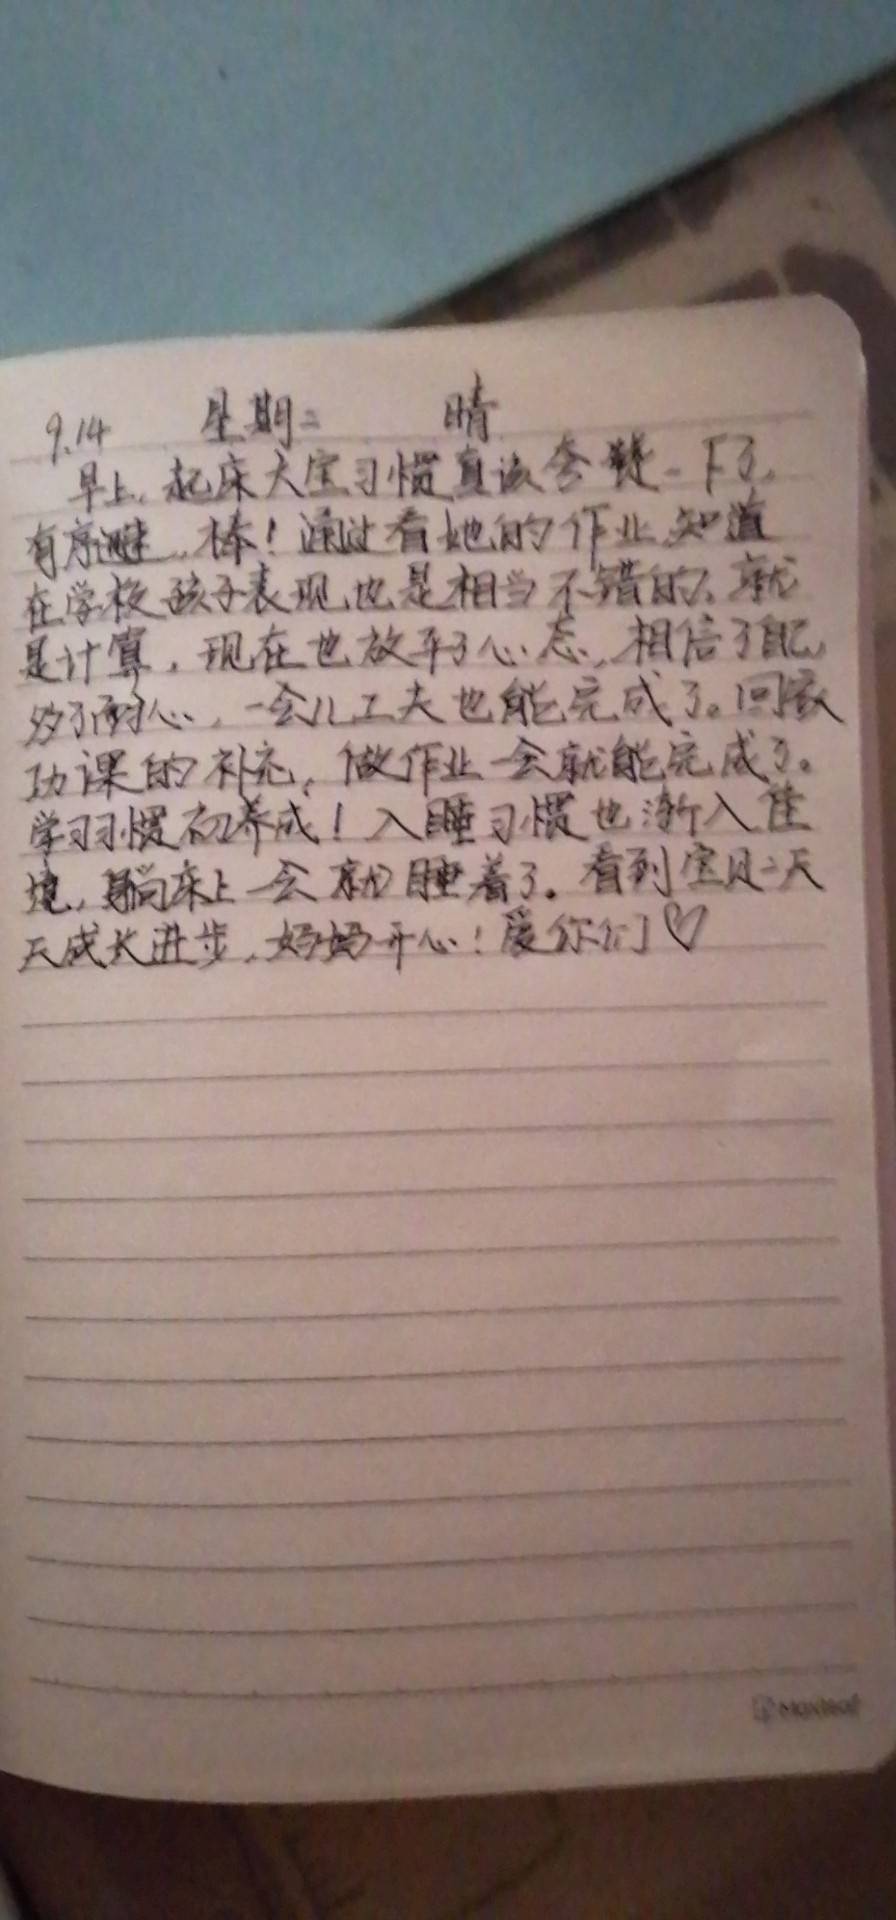 9.14 星期二 晴
早上,起床大宝习惯真该夸赞一下了,
有序进,棒!通过看她的作业,知道
在学校孩子表现也是相当不错的、就
是计算,现在也放平了心态,相信了自己
多了耐心,一会儿工夫也能完成了。回家
功课的补充,做作业一会就能完成了。
学习习惯初养成!入睡习惯也渐入佳
境,躺床上一会就睡着了。看到宝贝一天
天成长进步,妈妈开心!爱你们♡